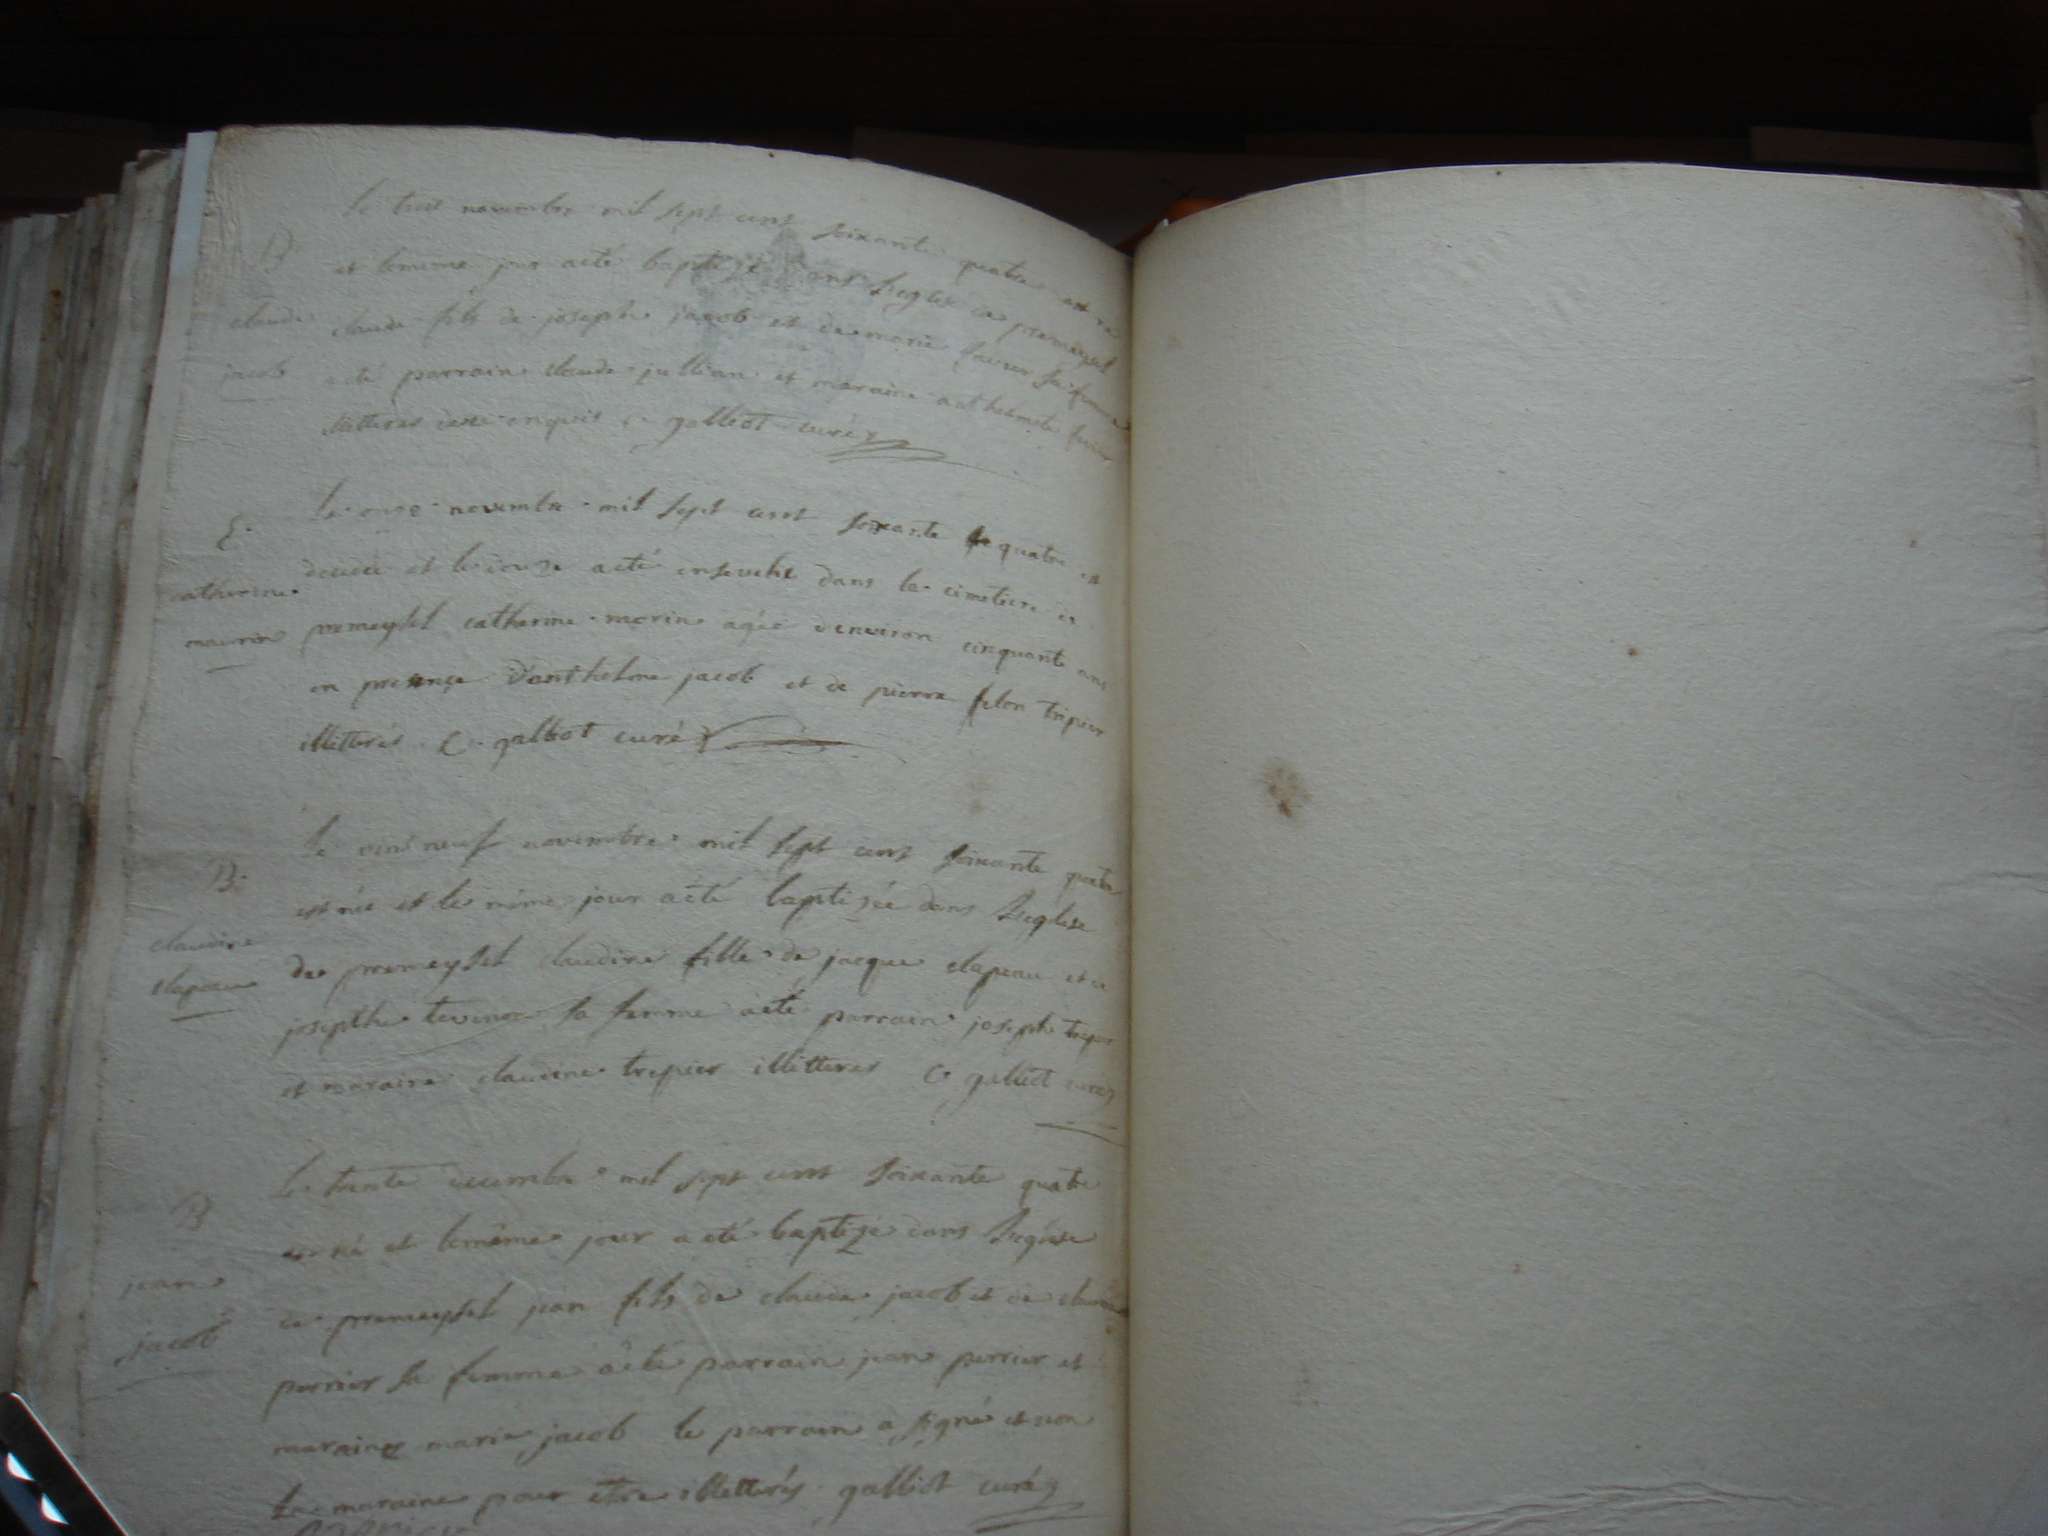 le trois novembre mil sept cent soixante quatre est né
B
et lememe jour aété baptizé dans leglise de premeyzel
claude
claude fils de joseph jacob et de marie sa femme
jacob
aété parrain claude jullian et maraine anthelmete
illitteres de ce enquis c galliot curé
S.
le onze novembre mil sept cent soixante quatre est
catherine
decedé et le douze aété enseveli dans le cimetiere de
maurin
premeysel catherine morin agée denviron cinquante ans
en presence danthelme jacob et de pierre filon tripier
illitterés C. galliot curé
le vint neuf novembre mil sept cent soixante quatre
B.
est née et le même jour aété baptizée dans leglise
claudine
clapeau
de premeysel claudine fille de jacque clapeau et de
josepthe tevenoz sa femme aété parrain joseph trepier
et maraine claudine trepier illitteres C. galliot curé
le trente decembre mil sept cent soixante quatre
B
est né et lemême jour a eté baptizé dans leglise
jean
de premeysel jean fils de claude jacob et de claudine
jacob
perrier sa femme aété parrain jean perrier et
maraine marie jacob le parrain a signé et non
la maraine pour etre illitterés galliot curé